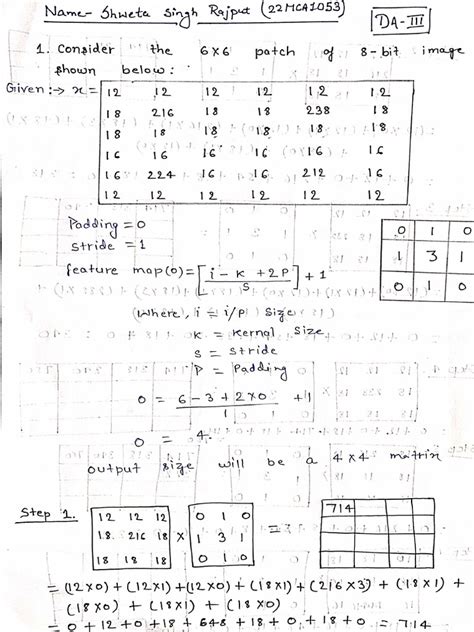 Name- Shweta Singh Rajput (22MCA1053)
DA-III
1. Consider the 6x6 patch of 8-bit image
shown below:
Given:→ x =
12 12 12 12 12 12
18 216 18 18 238 18
18 18 18 18 18 18
16 16 16 16 16 16
16 224 16 16 212 16
12 12 12 12 12 12
Padding = 0
Stride = 1
0 1 0
1 3 1
0 1 0
feature map(o) = [i - K + 2P / S] + 1
(Where, i = i/p size
K = Kernal Size
S = Stride
P = Padding
O = 6-3+2x0 / 1 + 1
O = 4.
output size will be a 4x4 matrix
Step 1.
12 12 12
18. 216 18
18 18 18
x
0 1 0
1 3 1
0 1 0
=
714
= (12x0) + (12x1) + (12x0) + (18x1) + (216x3) + (18x1) +
(18x0) + (18x1) + (18x0)
= 0 + 12 + 0 + 18 + 648 + 18 + 0 + 18 + 0 = 714